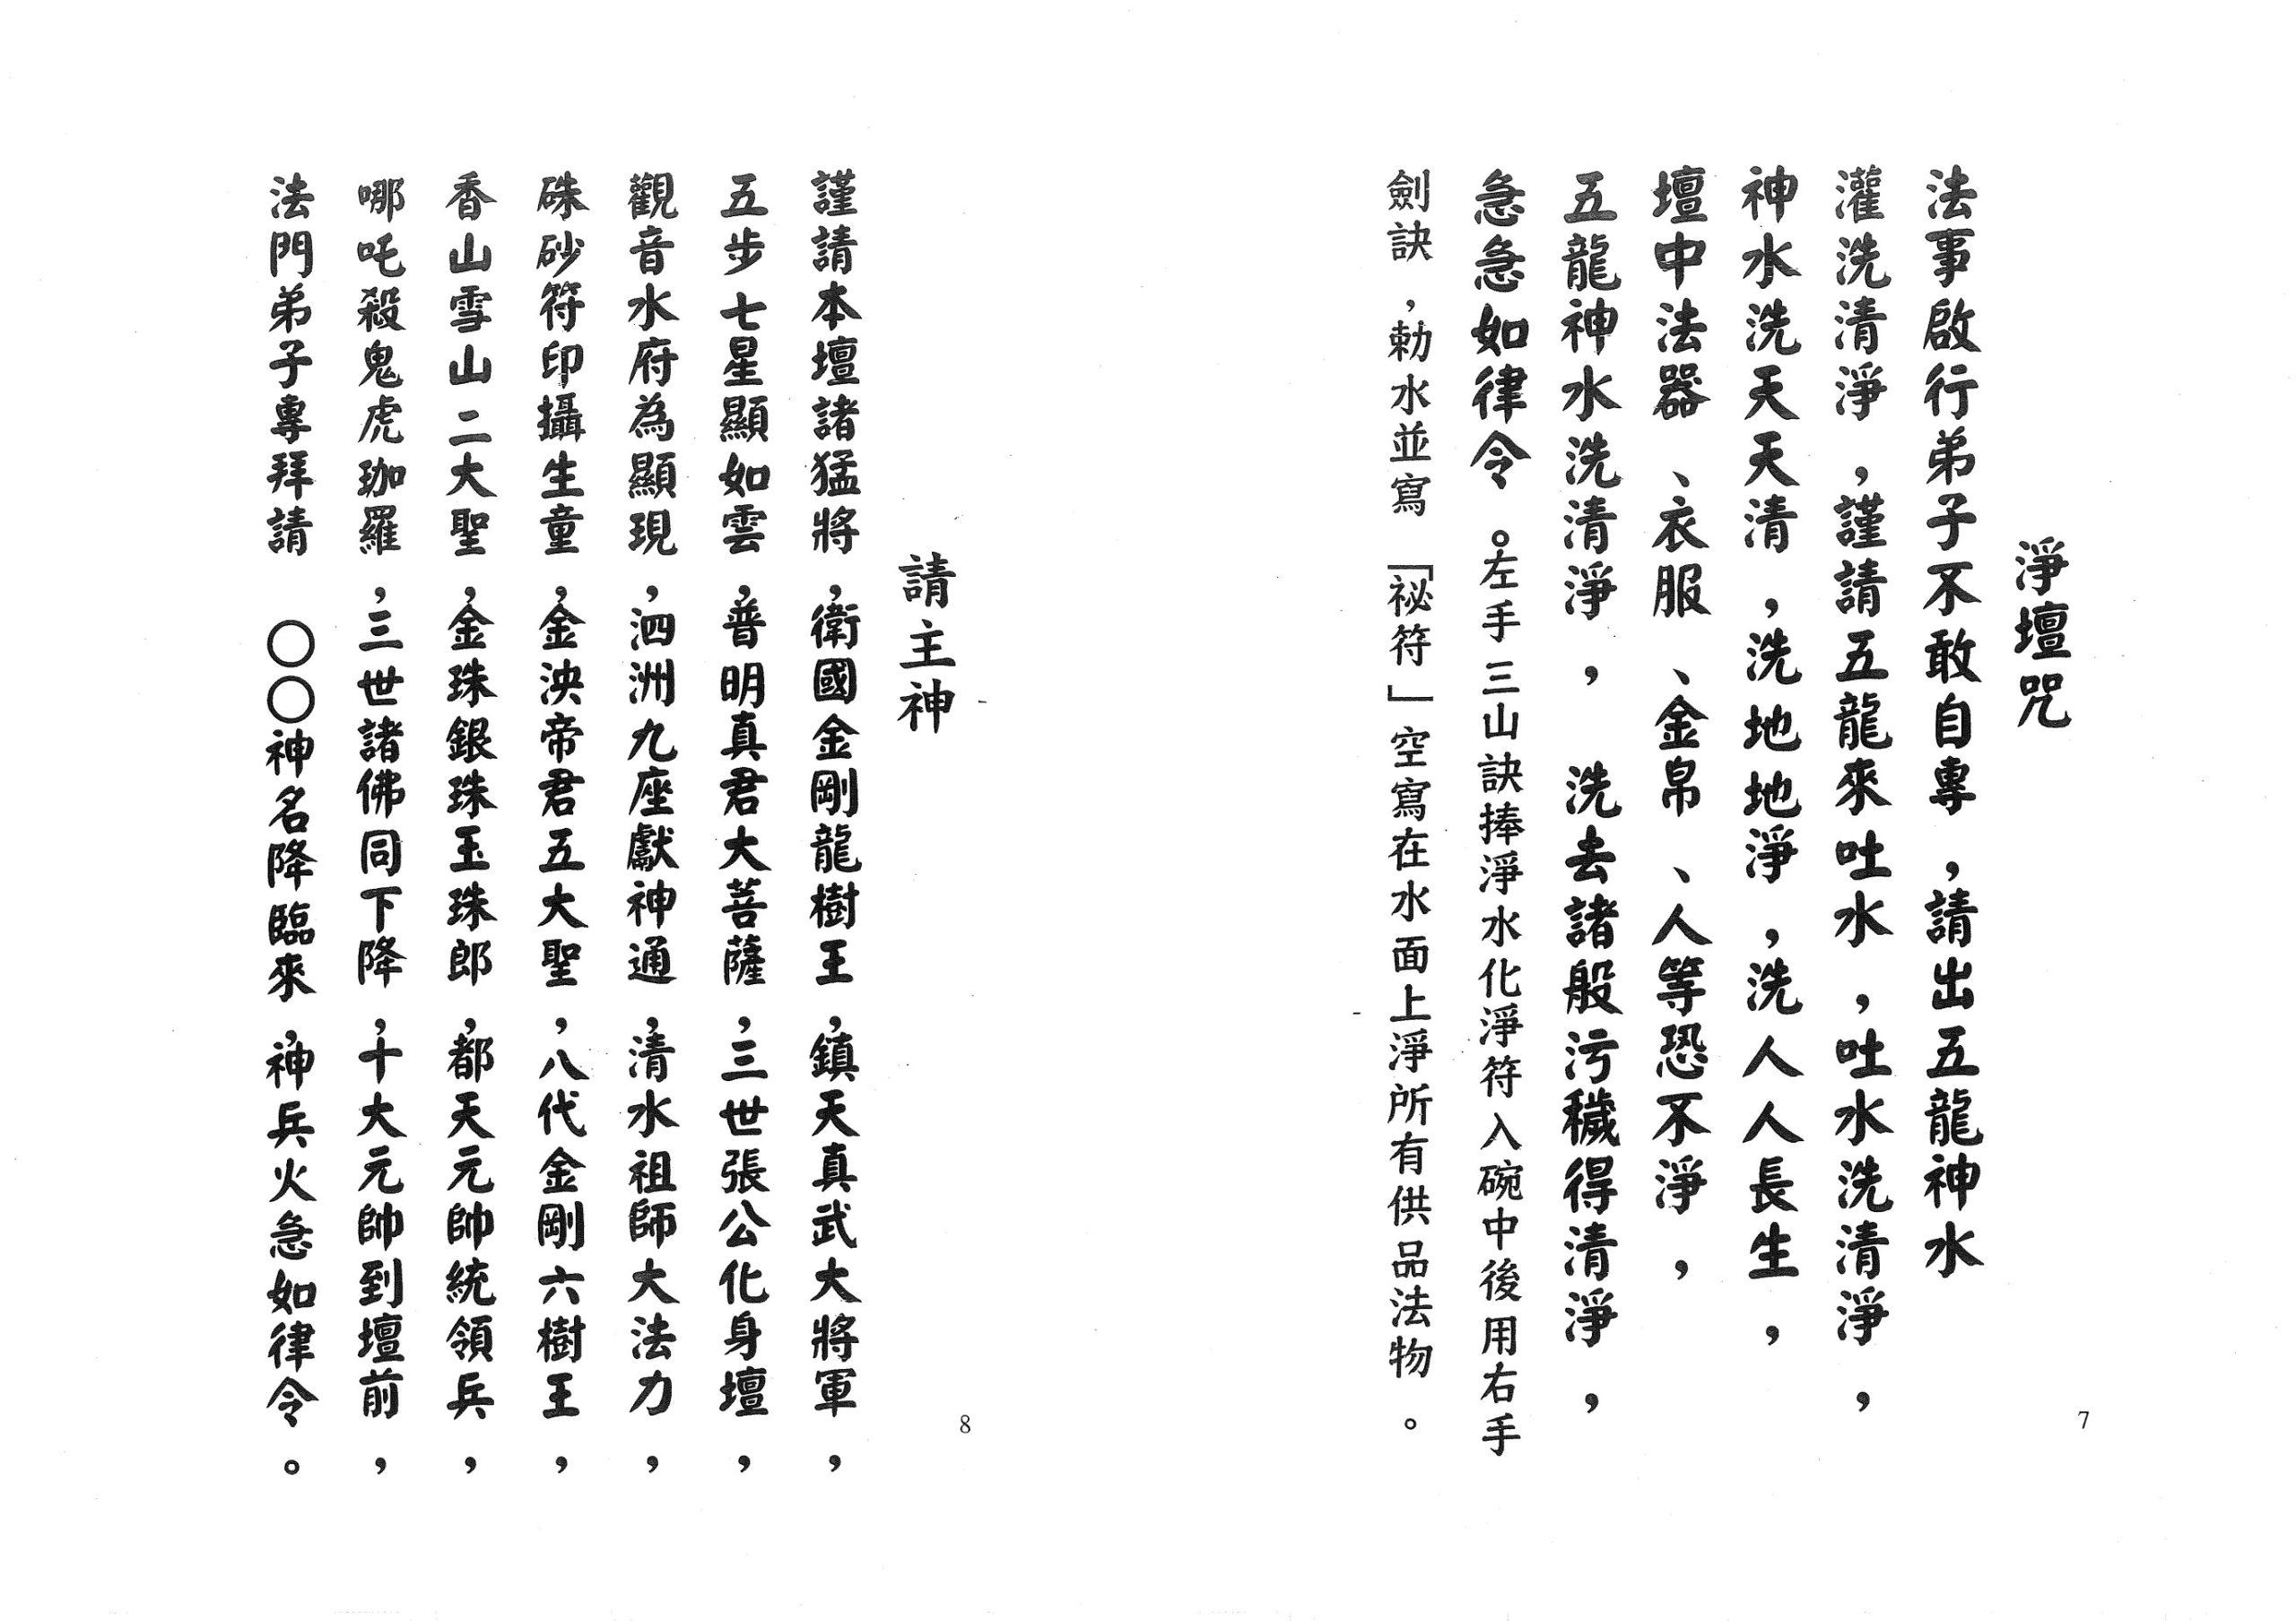 淨壇咒
法事啟行弟子不敢自專，請出五龍神水
灌洗清淨，謹請五龍來吐水，吐水洗清淨，
神水洗天天清，洗地地淨，洗人人長生，
壇中法器、衣服、金帛、人等恐不淨，
五龍神水洗清淨，洗去諸般污穢得清淨，
急急如律令。左手三山訣捧淨水化淨符入碗中後用右手
劍訣，勅水並寫「祕符」空寫在水面上淨所有供品法物。
7
請主神
謹請本壇諸猛將，衛國金剛龍樹王，鎮天真武大將軍，
五步七星顯如雲，普明真君大菩薩，三世張公化身壇，
觀音水府為顯現，泗洲九座獻神通，清水祖師大法力，
硃砂符印攝生童，金泱帝君五大聖，八代金剛六樹王，
香山雪山二大聖，金珠銀珠玉珠郎，都天元帥統領兵，
哪吒殺鬼虎珈羅，三世諸佛同下降，十大元帥到壇前，
法門弟子專拜請　○○神名降臨來，神兵火急如律令。
8